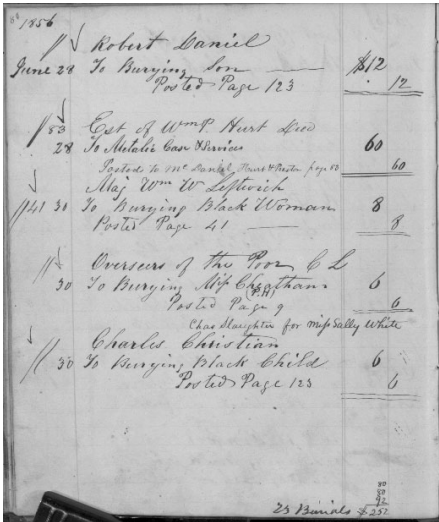 88 1856
Robert Daniel
June 28 To Burying Son $12
Posted Page 123 12
83 Est of Wm P. Hurt Decd
28 To Metalic Case & Services 60
Posted to Mc Daniel Hurt & Preston page 83 60
Maj Wm W Leftwich
41 30 To Burying Black Woman 8
Posted Page 41 8
Overseers of the Poor C L
30 To Burying Miss Cheatham 6
(P.H)
Posted Page 9 6
Chas Slaughter for Miss Sally White
Charles Christian
30 To Burying Black Child 6
Posted Page 123 6
80
80
92
23 Burials $252